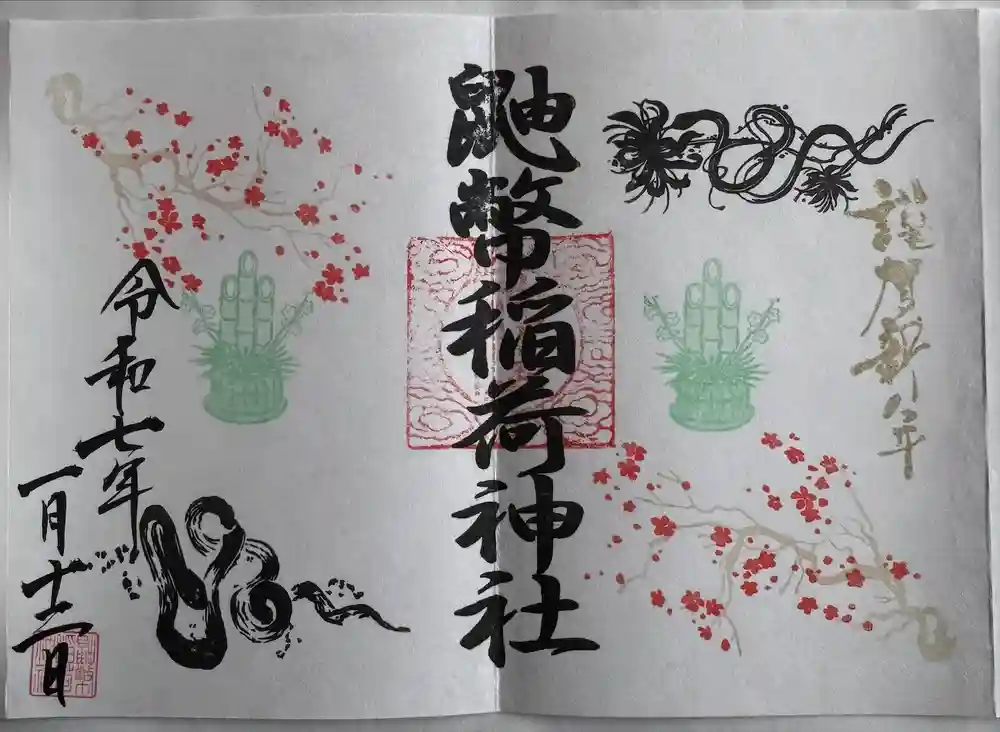 謹賀新年
鼬幣稲荷神社
令和七年
一月十二日